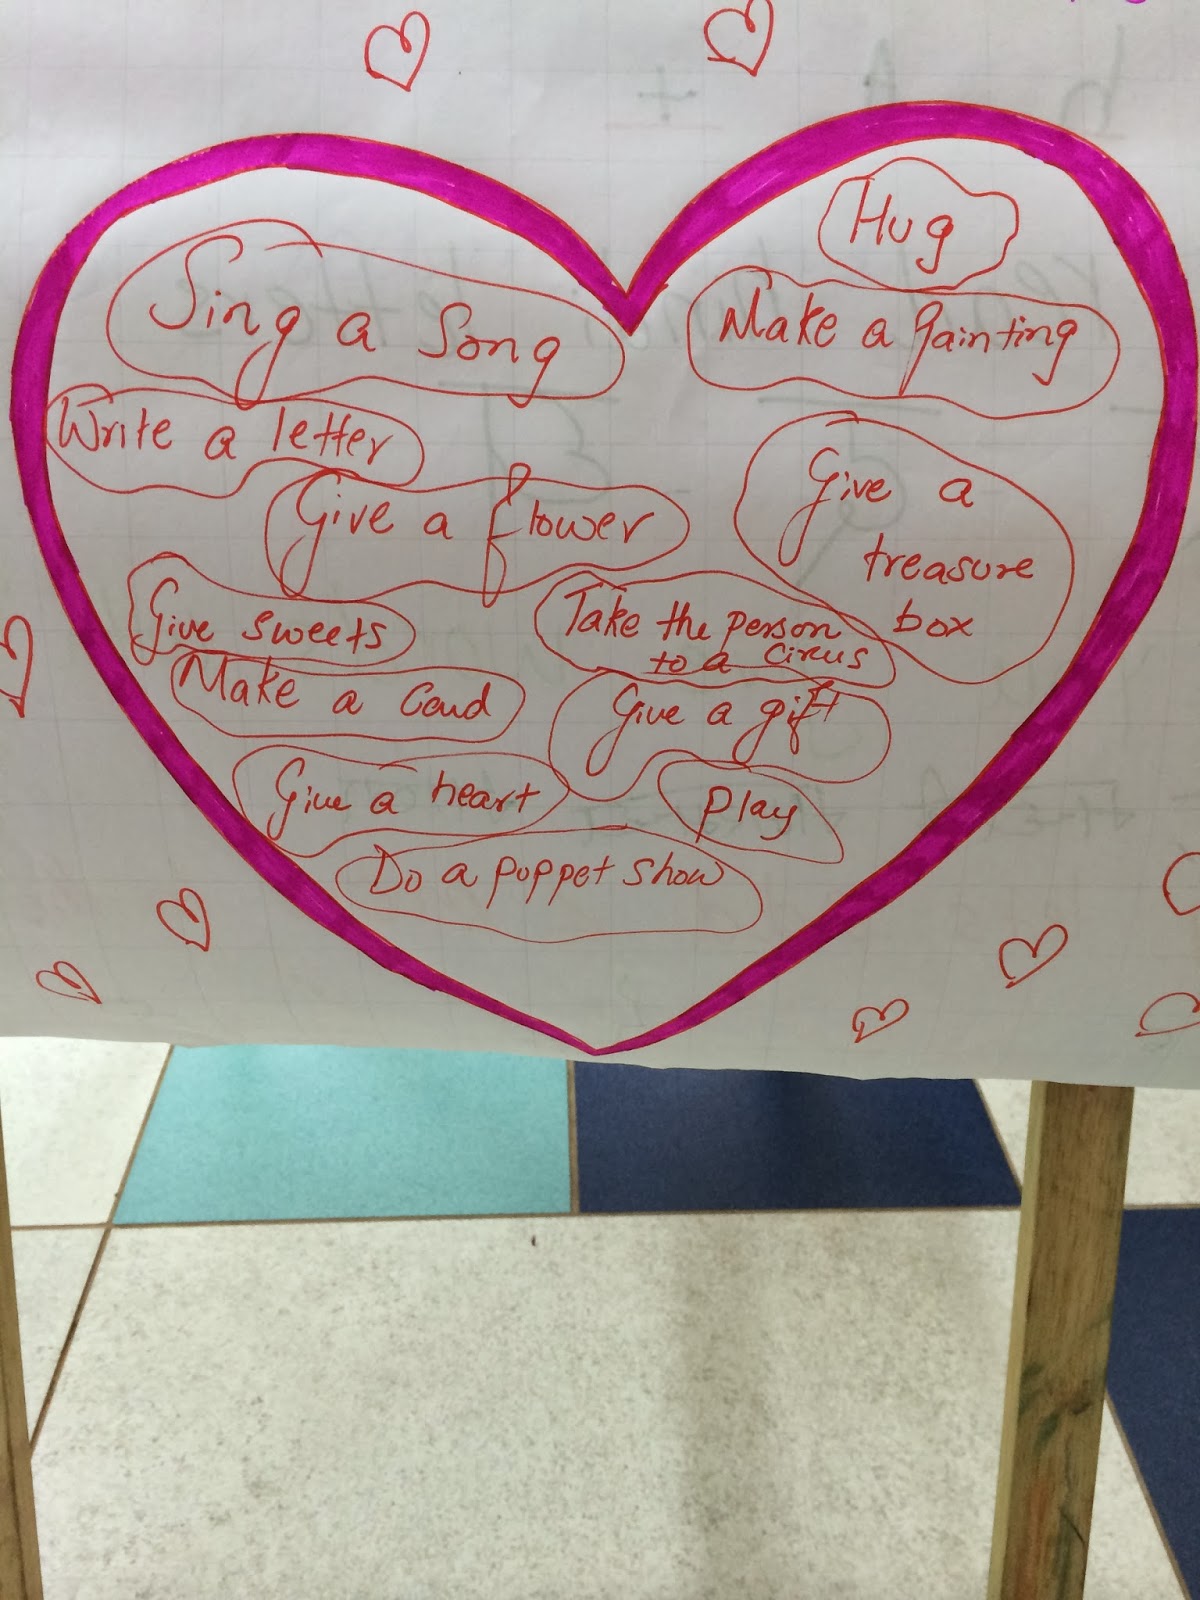 Sing a Song
Hug
Make a painting
Write a letter
Give a flower
Give a
treasure
box
Give sweets
Take the person
to a circus
Make a card
Give a gift
Give a heart
Play
Do a puppet show